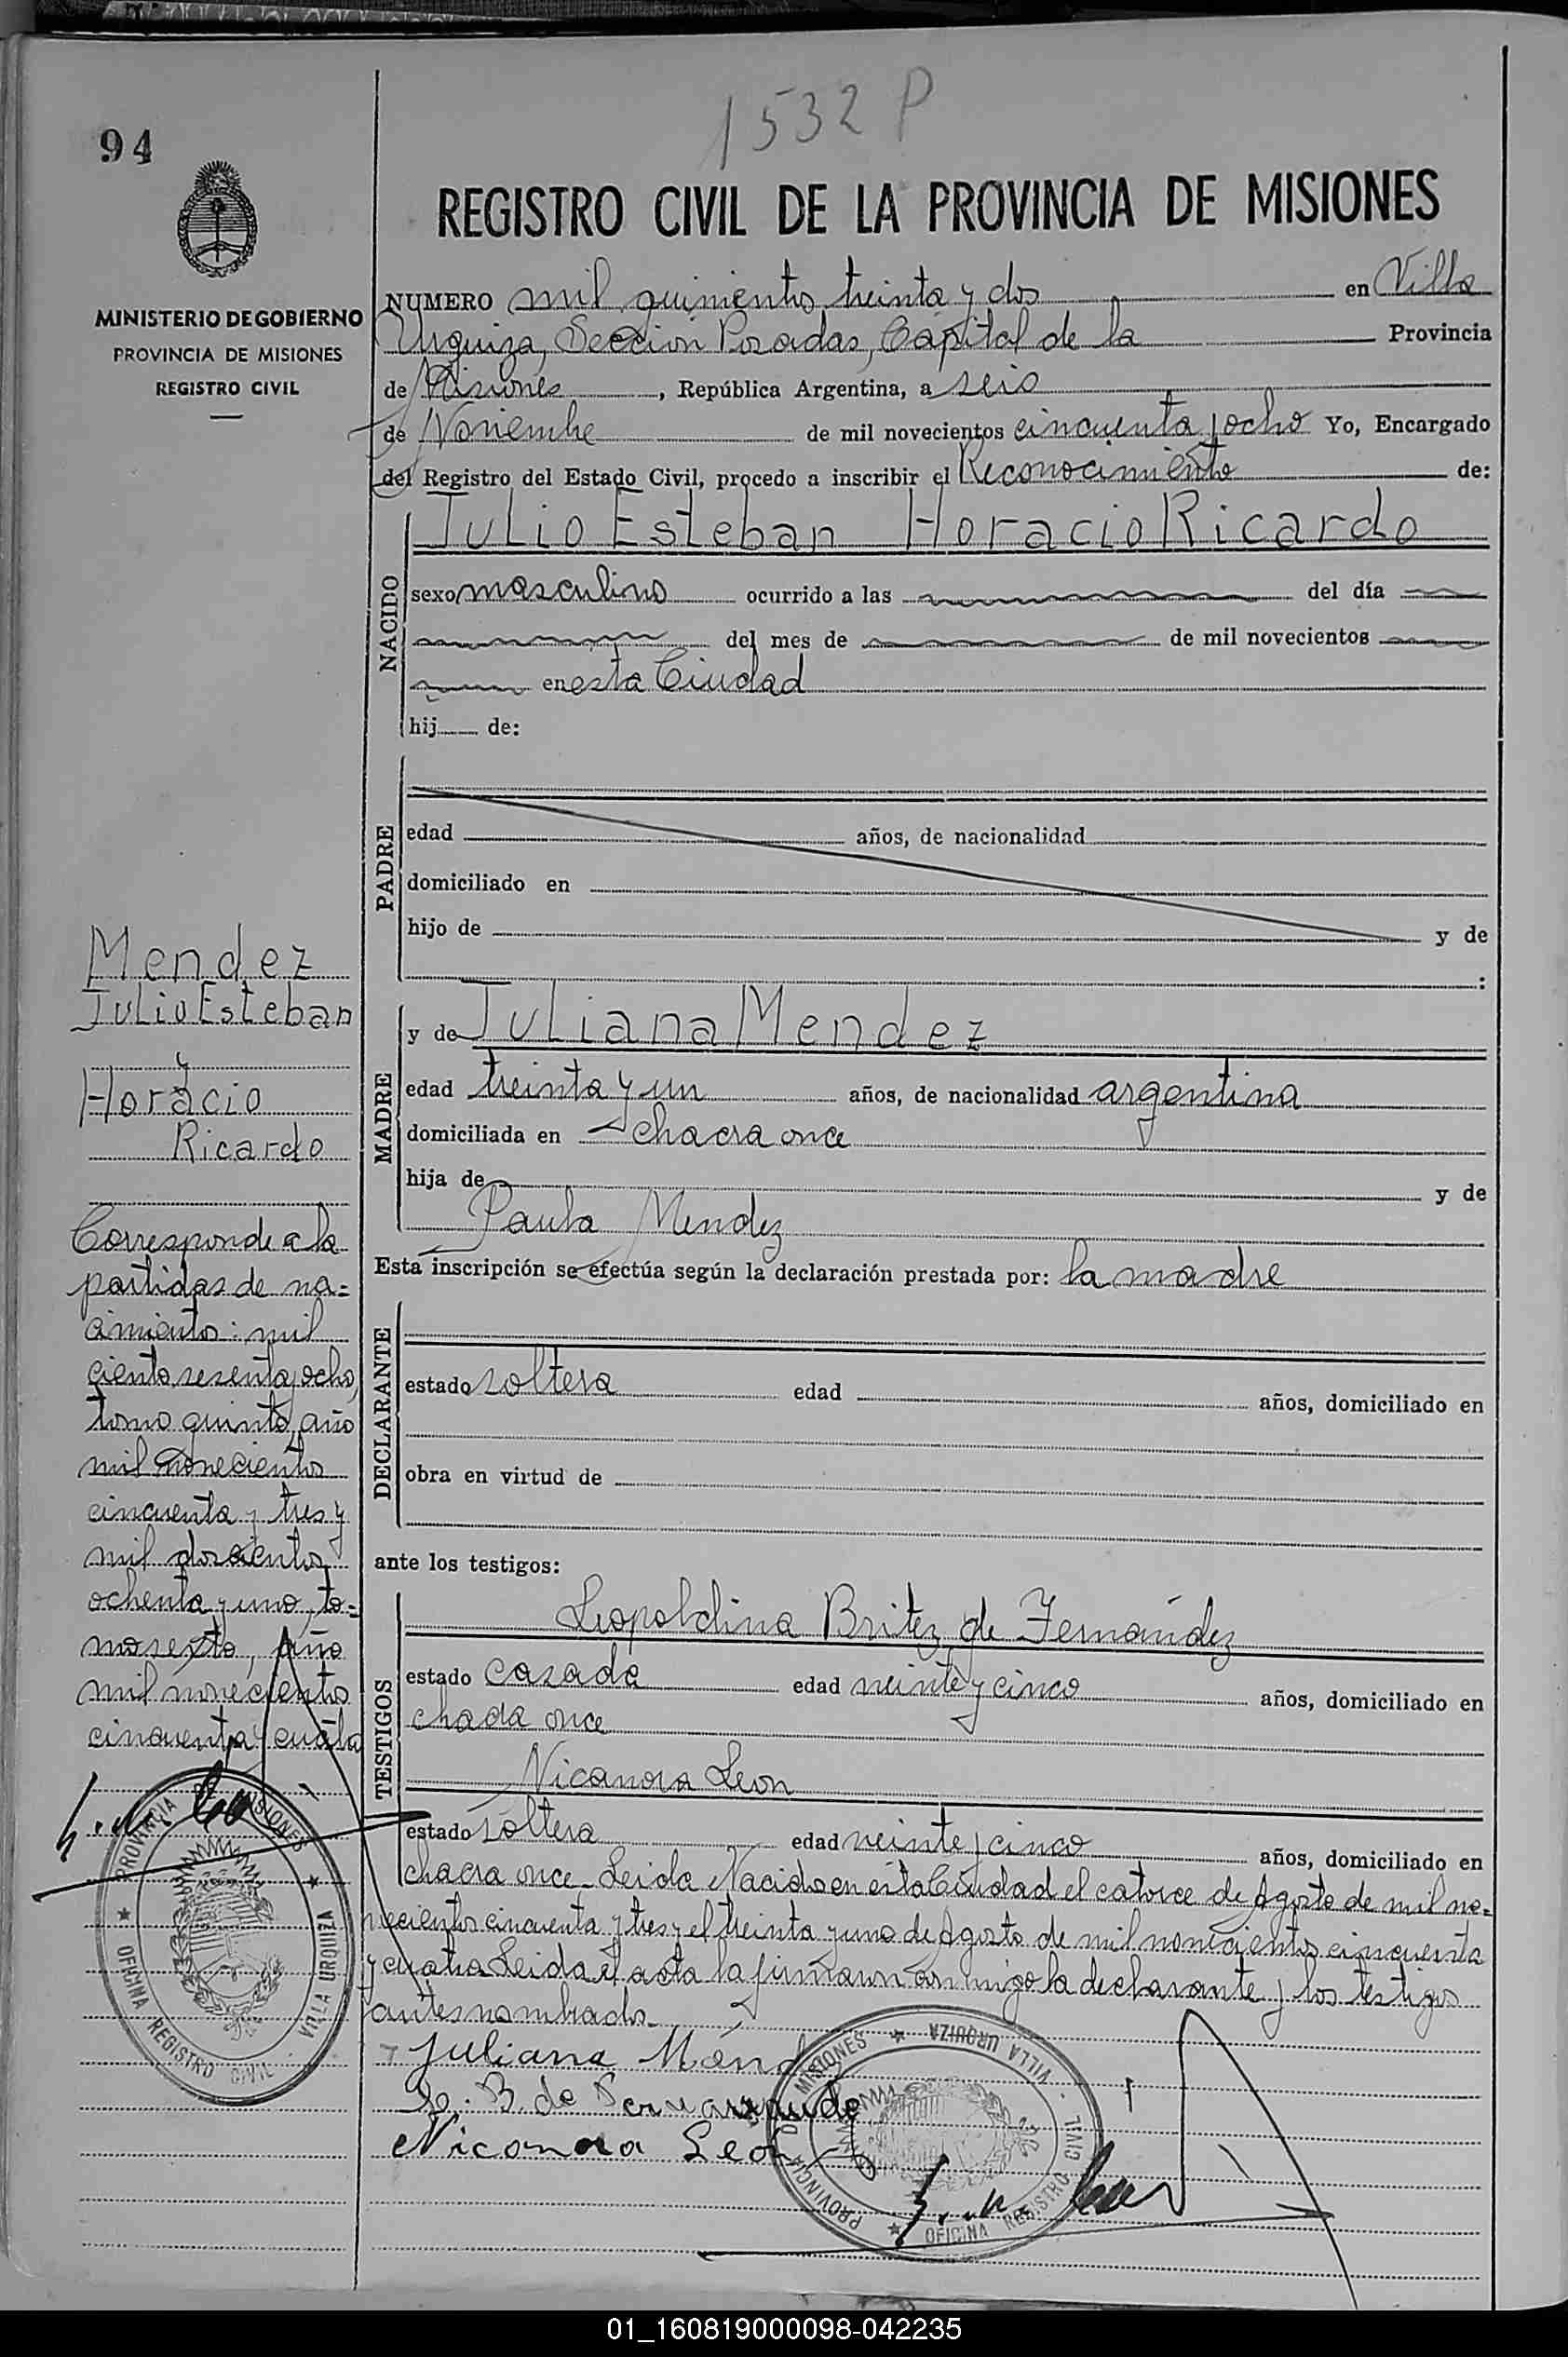 1532 P
94
REGISTRO CIVIL DE LA PROVINCIA DE MISIONES
MINISTERIO DE GOBIERNO
PROVINCIA DE MISIONES
REGISTRO CIVIL
NUMERO mil quinientos treinta y dos en Villa
Urquiza, Sección Posadas, Capital de la Provincia
de Misiones, República Argentina, a seis
de Noviembre de mil novecientos cincuenta y ocho Yo, Encargado
del Registro del Estado Civil, procedo a inscribir el Reconocimiento de:
NACIDO
Julio Esteban Horacio Ricardo
sexo masculino ocurrido a las del día
del mes de de mil novecientos
en esta Ciudad
hij de:
PADRE
edad años, de nacionalidad
domiciliado en
hijo de y de
:
MADRE
y de Juliana Mendez
edad treinta y un años, de nacionalidad argentina
domiciliada en chacra once
hija de y de
Paula Mendez
Esta inscripción se efectúa según la declaración prestada por: la madre
DECLARANTE
estado soltera edad años, domiciliado en
obra en virtud de
ante los testigos:
TESTIGOS
Leopoldina Britez de Fernández
estado casada edad veinte y cinco años, domiciliado en
chacra once
Nicanora Leon
estado soltera edad veinte y cinco años, domiciliado en
chacra once - Leida Nacidos en esta Ciudad el catorce de Agosto de mil no=
vecientos cincuenta y tres y el treinta y uno de Agosto de mil novecientos cincuenta
y cuatro Leida el acta la firmaron conmigo la declarante y los testigos
antes nombrados.
Juliana Ménd
B. de
Nicanora León
PROVINCIA DE MISIONES ★ VILLA URQUIZA
OFICINA REGISTRO CIVIL ★
Mendez
Julio Esteban
y
Horacio
Ricardo
Corresponde a la
partidas de na=
cimientos: mil
ciento sesenta y ocho,
tomo quinto, año
mil novecientos
cincuenta y tres y
mil doscientos
ochenta y uno, to=
mo sexto, año
mil novecientos
cincuenta y cuatro
PROVINCIA MISIONES ★ VILLA URQUIZA
OFICINA REGISTRO CIVIL ★
01_160819000098-042235